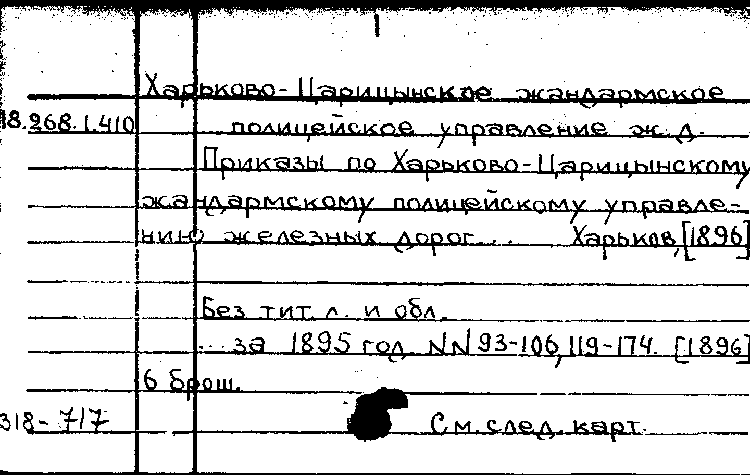 Харьково-Царицынское жандармское
18.268.1.410 полицейское управление ж.д.
Приказы по Харьково-Царицынскому
жандармскому полицейскому управле-
нию железных дорог... Харьков, [1896]
Без тит. л. и обл.
... за 1895 год. NN 93-106, 119-174. [1896]
6 брош.
318-717 См. след. карт.